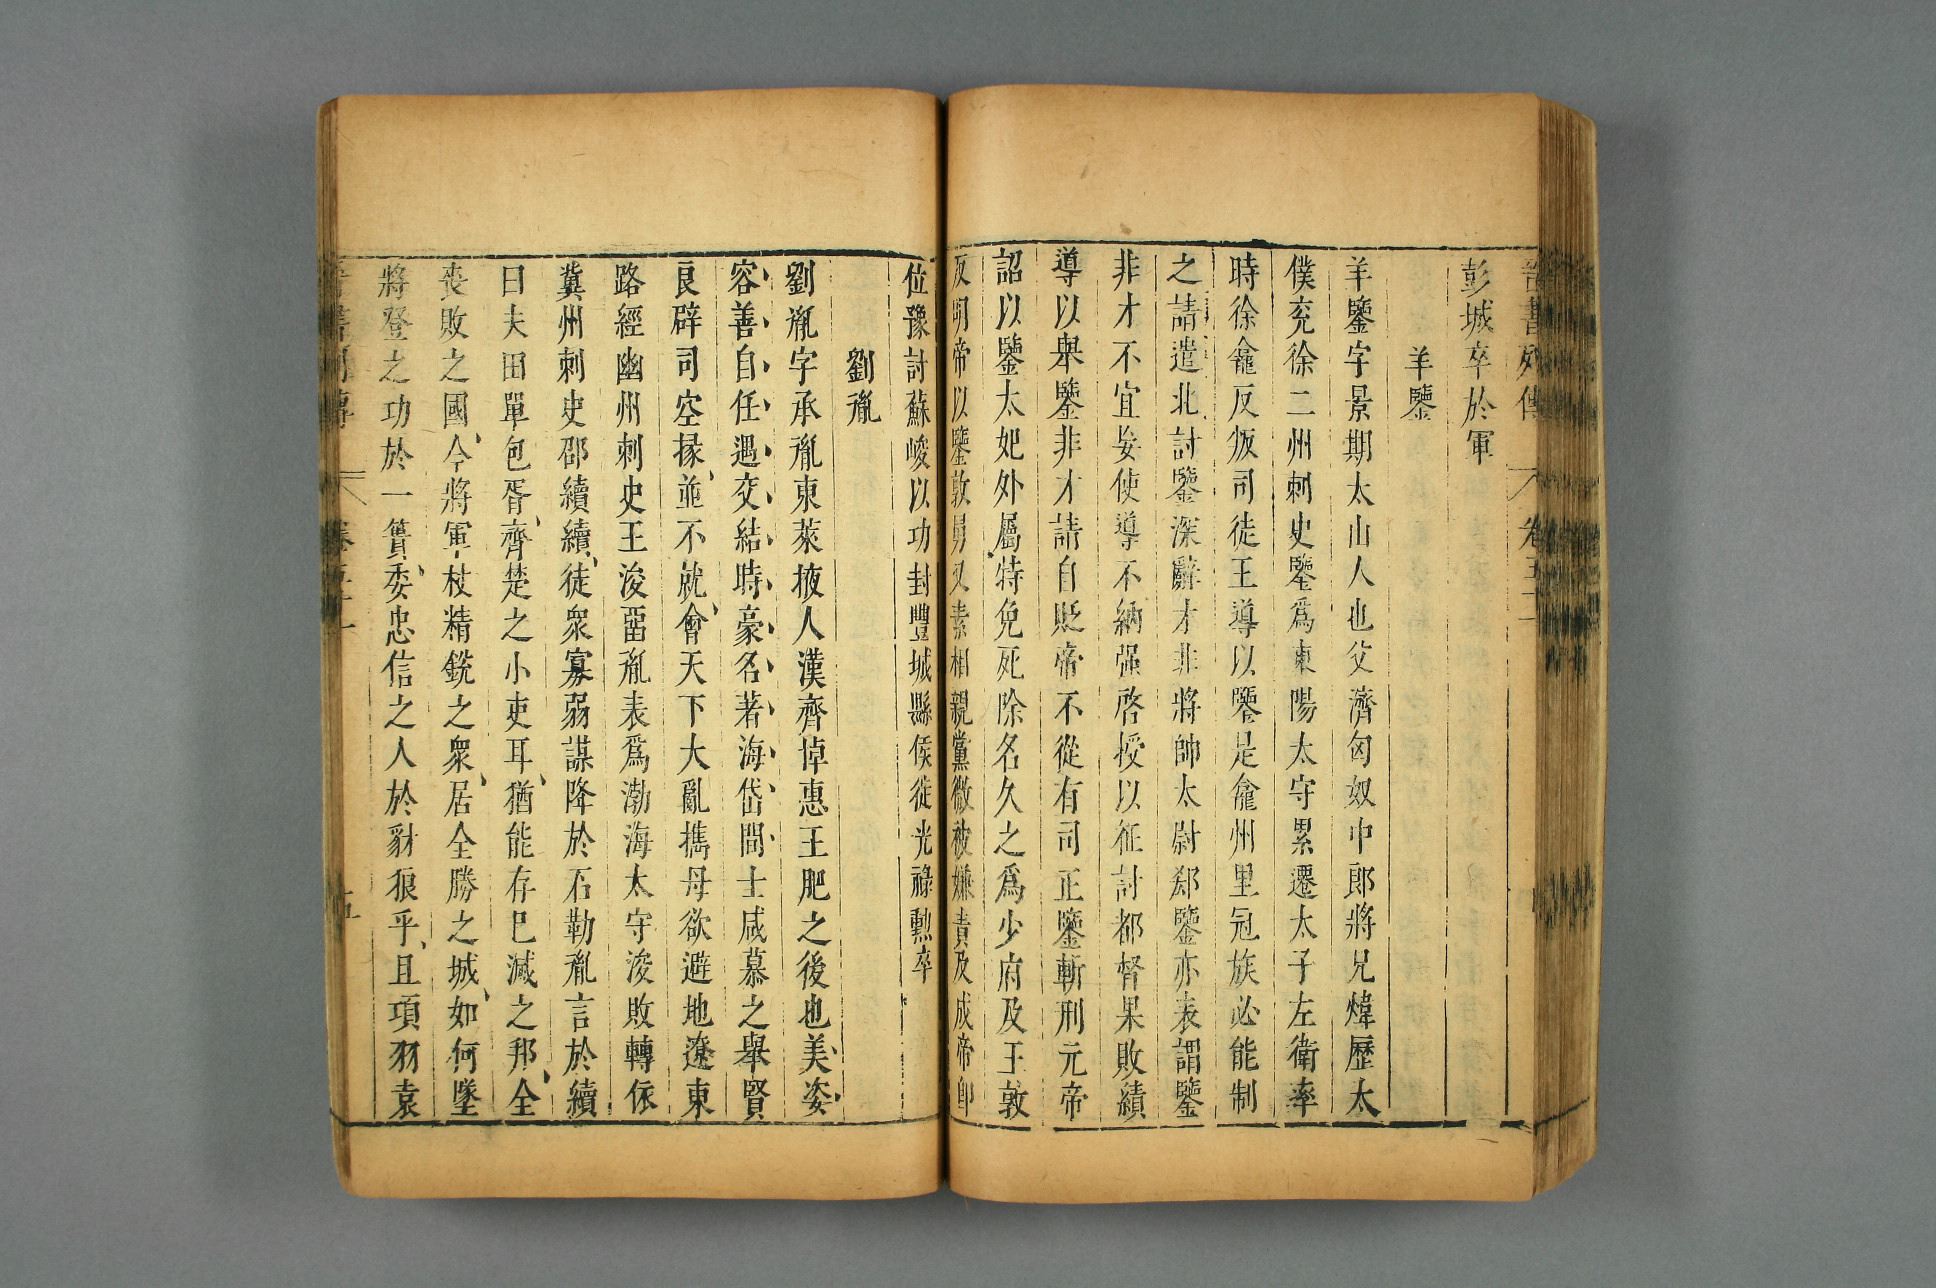 晉書列傳 卷五十一
彭城卒於軍
羊鑒
羊鑒字景期太山人也父濟匈奴中郎將兄煒歷太
僕兖徐二州刺史鑒爲東陽太守累遷太子左衛率
時徐龕反叛司徒王導以鑒是龕州里冠族必能制
之請遣北討鑒深辭才非將帥太尉郄鑒亦表謂鑒
非才不宜妄使導不納强啓授以征討都督果敗績
導以舉鑒非才請自貶帝不從有司正鑒斬刑元帝
詔以鑒太妃外屬特免死除名久之爲少府及王敦
反明帝以鑒敦舅又素相親黨微被嫌責及成帝卽
位豫討蘇峻以功封豐城縣侯徙光祿勳卒
劉胤
劉胤字承胤東萊掖人漢齊悼惠王肥之後也美姿
容善自任遇交結時豪名著海岱間士咸慕之舉賢
良辟司空掾並不就會天下大亂擕母欲避地遼東
路經幽州刺史王浚畱胤表爲渤海太守浚敗轉依
冀州刺史邵續續徒衆寡弱謀降於石勒胤言於續
曰夫田單包胥齊楚之小吏耳猶能存已滅之邦全
喪敗之國今將軍杖精銳之衆居全勝之城如何墜
將登之功於一簣委忠信之人於豺狼乎且項羽袁
晉書列傳 卷五十一 五